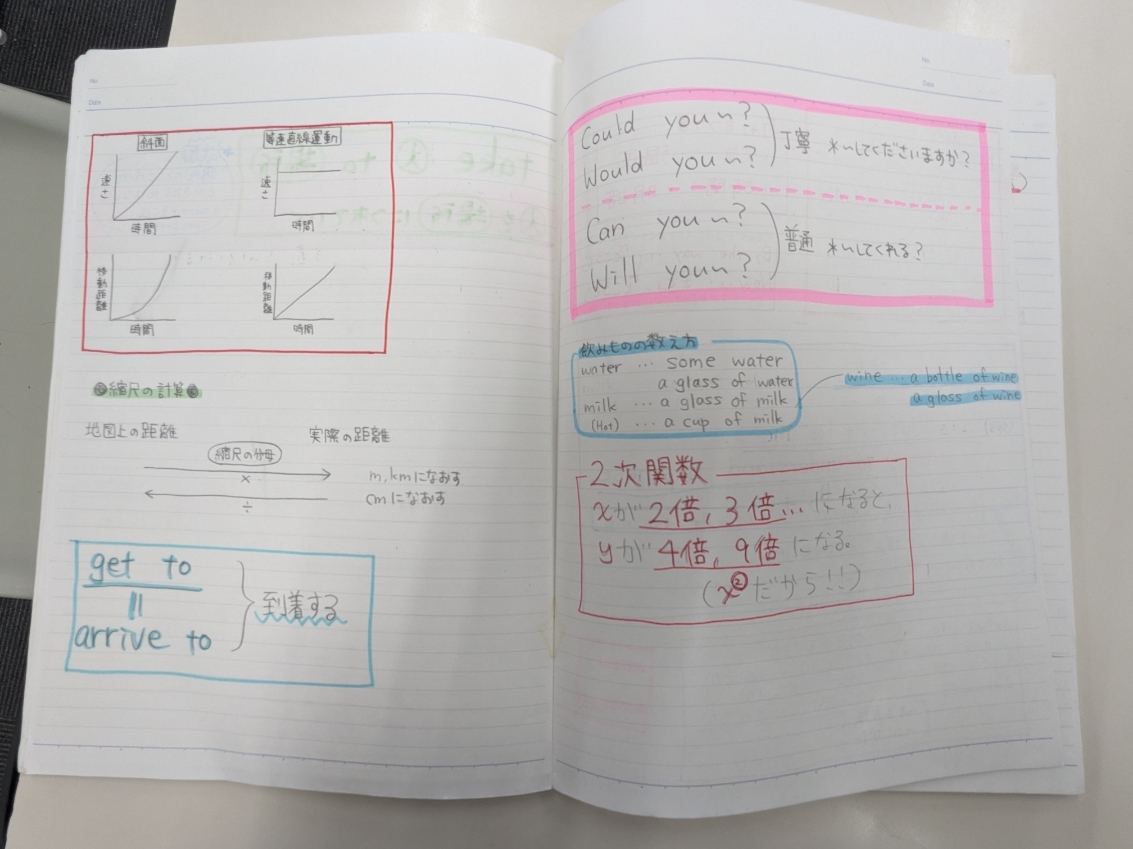 No.
Date
斜面
等速直線運動
速さ
時間
速さ
時間
移動距離
時間
移動距離
時間
縮尺の計算
地図上の距離
実際の距離
縮尺の分母
×
m,kmになおす
÷
cmになおす
get to
=
arrive to
到着する
No.
Date
Could you 〜?
Would you 〜?
丁寧 〜してくださいますか?
Can you 〜?
Will you 〜?
普通 〜してくれる?
飲みものの数え方
water … some water
a glass of water
milk … a glass of milk
(Hot) … a cup of milk
wine … a bottle of wine
a glass of wine
2次関数
xが2倍,3倍…になると、
yが4倍,9倍になる。
(x²だから!!)